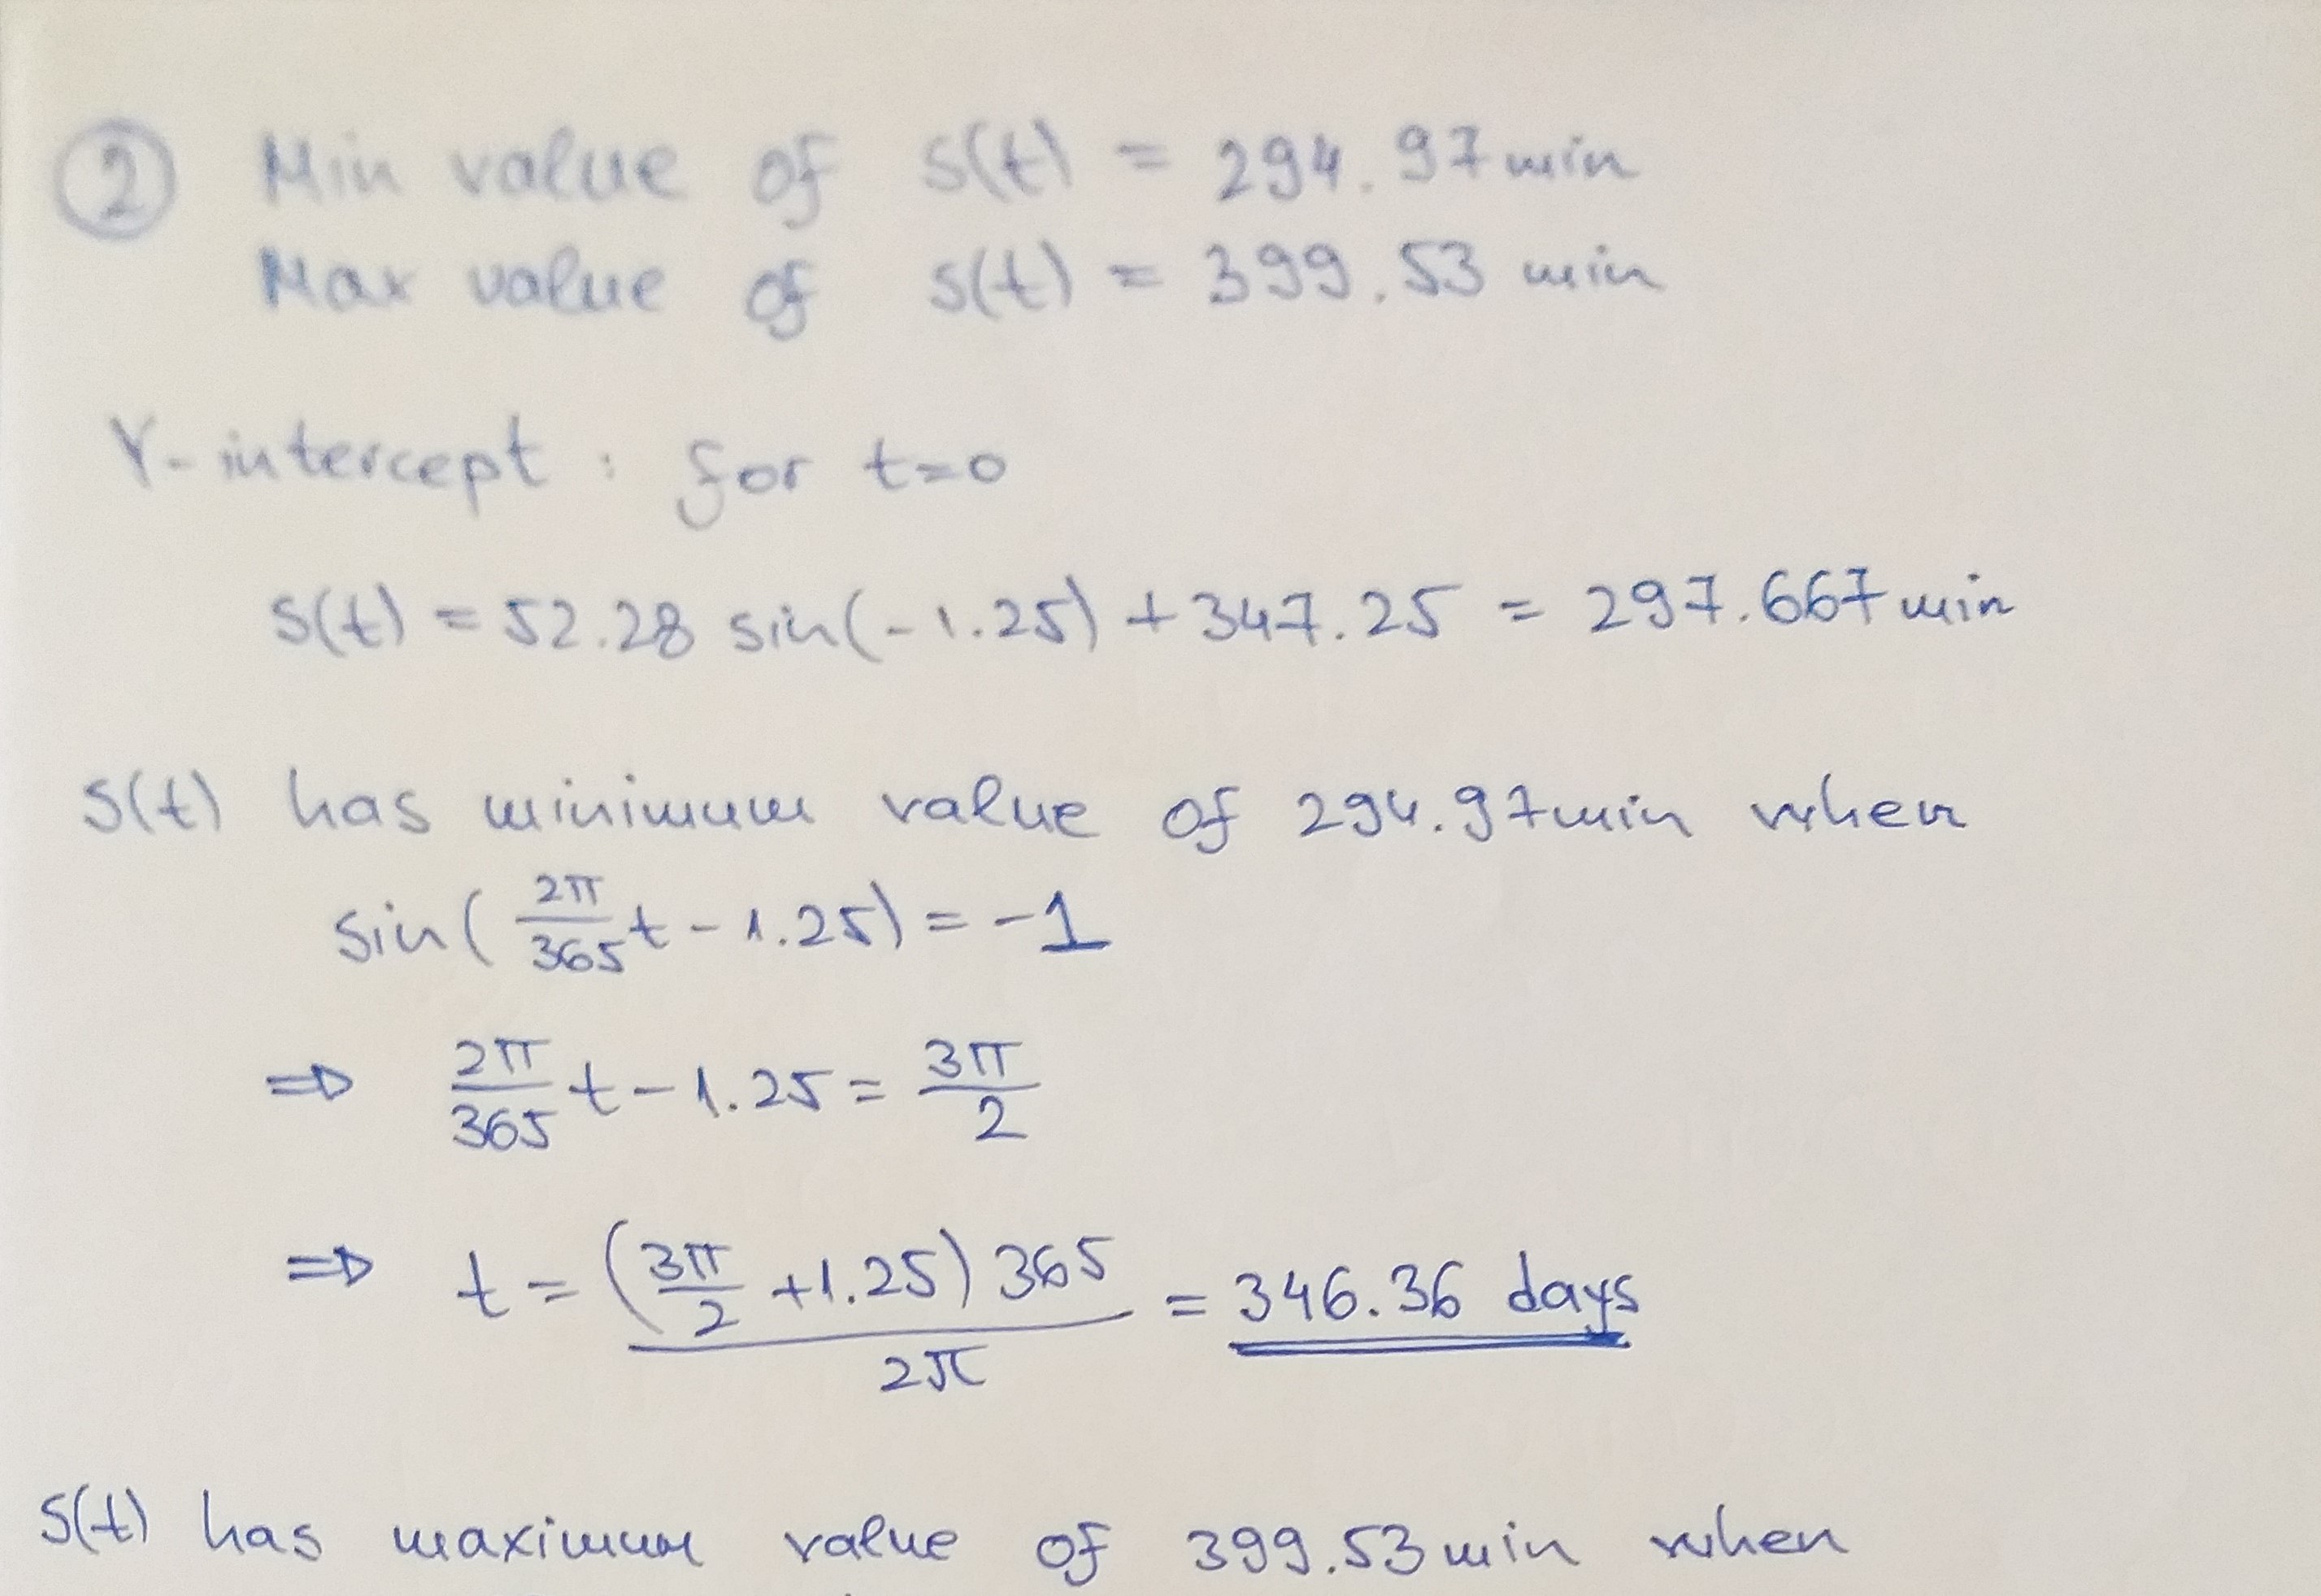 ② Min value of s(t) = 294.97 min
Max value of s(t) = 399.53 min
Y-intercept : for t=0
s(t) = 52.28 sin(-1.25) + 347.25 = 297.667 min
s(t) has minimum value of 294.97 min when
sin( 2π/365 t - 1.25) = -1
⇒ 2π/365 t - 1.25 = 3π/2
⇒ t = (3π/2 + 1.25) 365 / 2π = 346.36 days
s(t) has maximum value of 399.53 min when